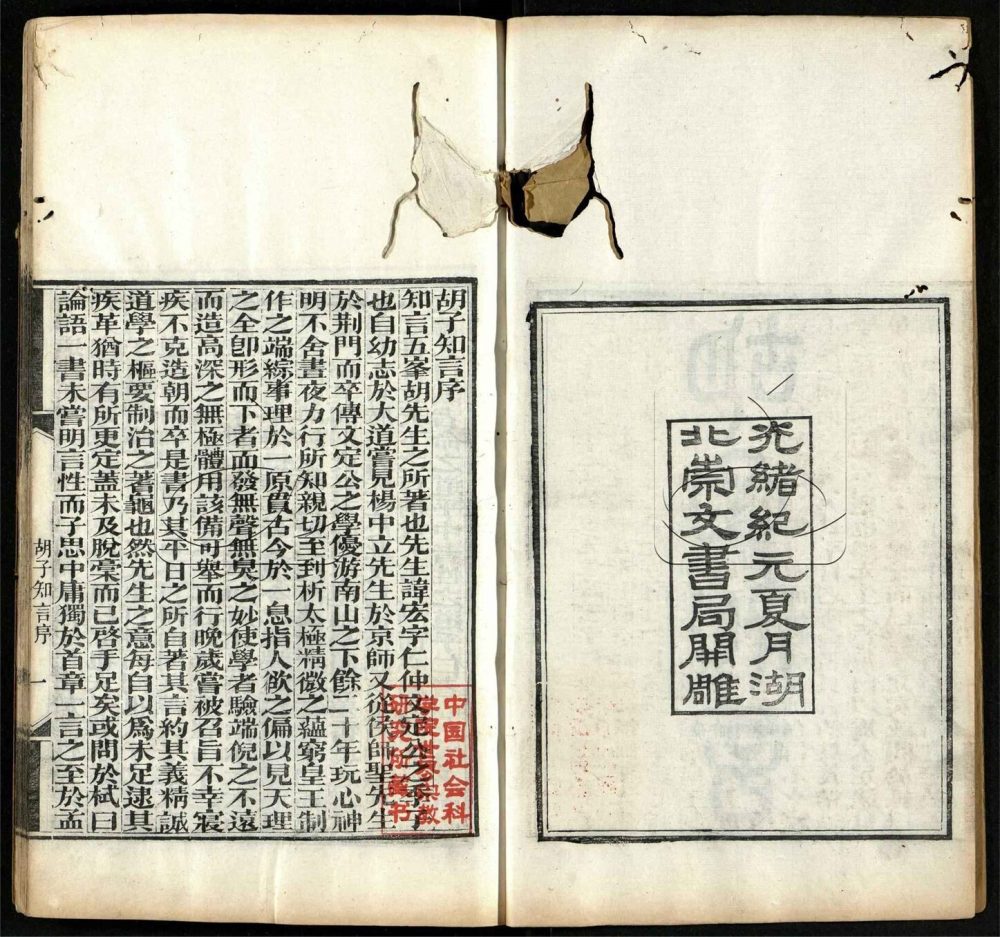 光緒紀元夏月湖
北崇文書局開雕
胡子知言序
知言五峯胡先生之所著也先生諱宏字仁仲文定公之季子
也自幼志於大道嘗見楊中立先生於京師又從侯師聖先生
於荆門而卒傳文定公之學優游南山之下餘二十年玩心神
明不舍晝夜力行所知親切至到析太極精微之蘊窮皇王制
作之端綜事理於一原貫古今於一息指人欲之偏以見天理
之全卽形而下者而發無聲無臭之妙使學者驗端倪之不遠
而造高深之無極體用該備可舉而行晚歲嘗被召旨不幸寢
疾不克造朝而卒是書乃其平日之所自著其言約其義精誠
道學之樞要制治之蓍龜也然先生之意每自以爲未足逮其
疾革猶時有所更定蓋未及脫稾而已啓手足矣或問於栻曰
論語一書未嘗明言性而子思中庸獨於首章一言之至於孟
胡子知言序
一
中国社会科
学院世界宗教
研究所藏书